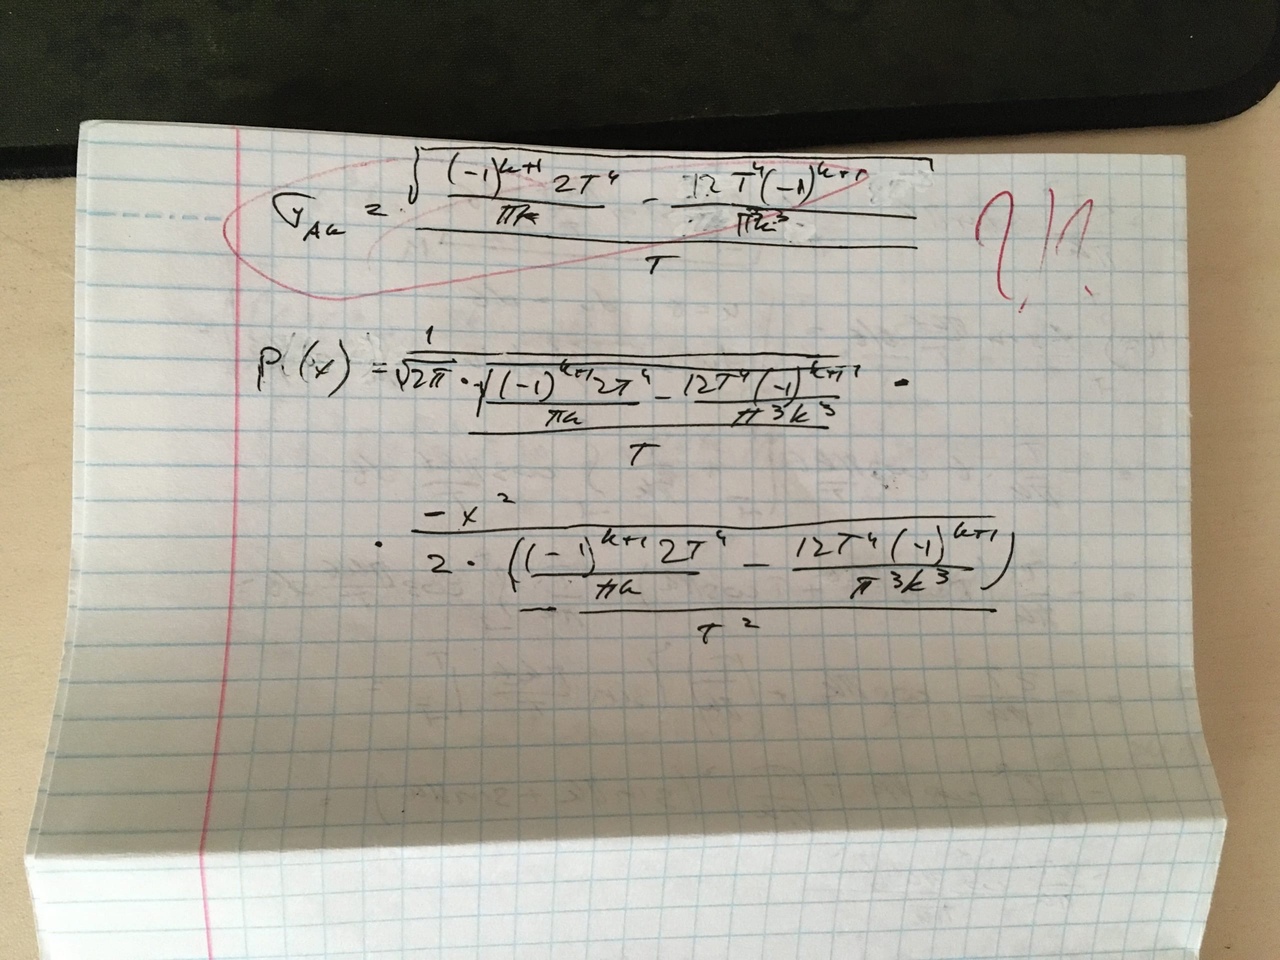 σ_{A_k} = \frac{\sqrt{\frac{(-1)^{k+1} 2T^4}{πk} - \frac{12T^4(-1)^{k+1}}{π^3k^3}}}{T} ?!!
P(x) = \frac{1}{\sqrt{2π} \cdot \frac{\sqrt{\frac{(-1)^{k+1} 2T^4}{πk} - \frac{12T^4(-1)^{k+1}}{π^3k^3}}}{T}} \cdot
\cdot \frac{-x^2}{2 \cdot \frac{\left(\frac{(-1)^{k+1} 2T^4}{πk} - \frac{12T^4(-1)^{k+1}}{π^3k^3}\right)}{T^2}}